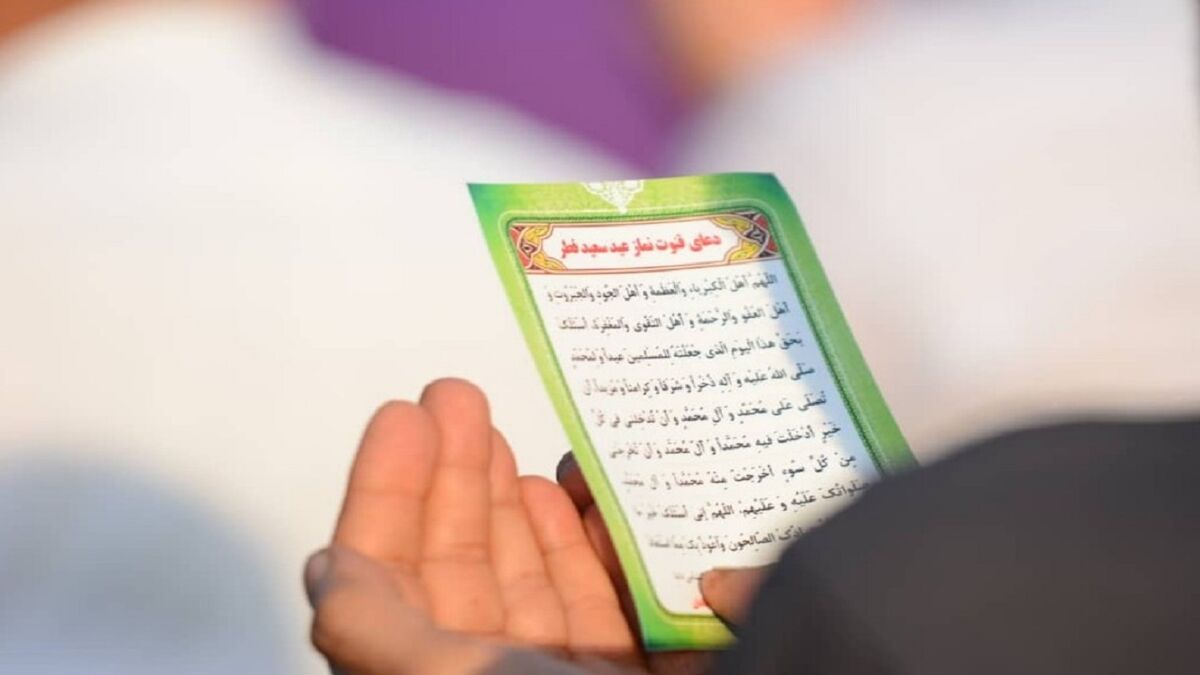 دعای قنوت نماز عید سعید فطر
اللّهُمَّ اَهْلَ الْكِبْرِياءِ وَالْعَظَمَةِ وَ اَهْلَ الْجُودِ وَالْجَبَرُوتِ وَ
اَهْلَ الْعَفْوِ وَالرَّحْمَةِ وَ اَهْلَ التَّقْوى وَالْمَغْفِرَةِ، اَسْئَلُكَ
بِحَقِّ هذَا الْيَومِ الَّذى جَعَلْتَهُ لِلْمُسْلِمينَ عيداً وَ لِمُحَمَّدٍ
صَلَّى اللهُ عَلَيْهِ وَ آلِهِ ذُخْراً وَ شَرَفاً وَ كِرامَتاً وَ مَزيداً، اَن
تُصَلِّىَ عَلى مُحَمَّدٍ وَ آلِ مُحَمَّدٍ وَ اَنْ تُدْخِلَنى فى كُلِّ
خَيْرٍ اَدْخَلْتَ فيهِ مُحَمَّداً وَ آلَ مُحَمَّدٍ وَ اَنْ تُخْرِجَنى
مِنْ كُلِّ سُوءٍ اَخْرَجْتَ مِنْهُ مُحَمَّداً وَ آلَ مُحَمَّدٍ،
صَلَواتُكَ عَلَيْهِ وَ عَلَيْهِمْ، اَللّهُمَّ اِنّى اَسْئَلُكَ خَيْرَ ما
الصّالِحُونَ وَ اَعُوذُ بِكَ مِمَّا اسْتَعاذَ